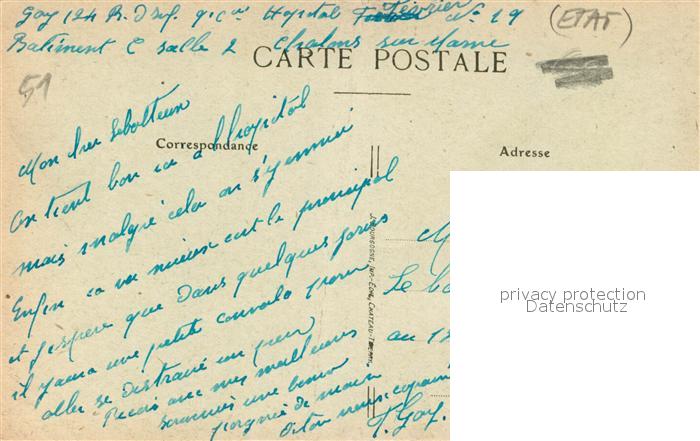 Gay 124 R. D'Inf. 9e Cie Hopital Février No 19
(ETAT)
Batiment C salle 2 Chalons sur Marne
CARTE POSTALE
51
Correspondance
Adresse
Mon
on tient bon ici a l'hopital
mais malgré cela on s'y ennui
Enfin ca va mieux cest le principal
et j'espere que dans quelques jours
il y aura une petite convalo pour
aller se distraire un peu
Recois avec mes meilleurs
une bonne
poignée de main
J. BOURGOGNE, IMP.-EDIT., CHATEAU-THIERRY
M
Le
au 12
T. Gay.
privacy protection
Datenschutz